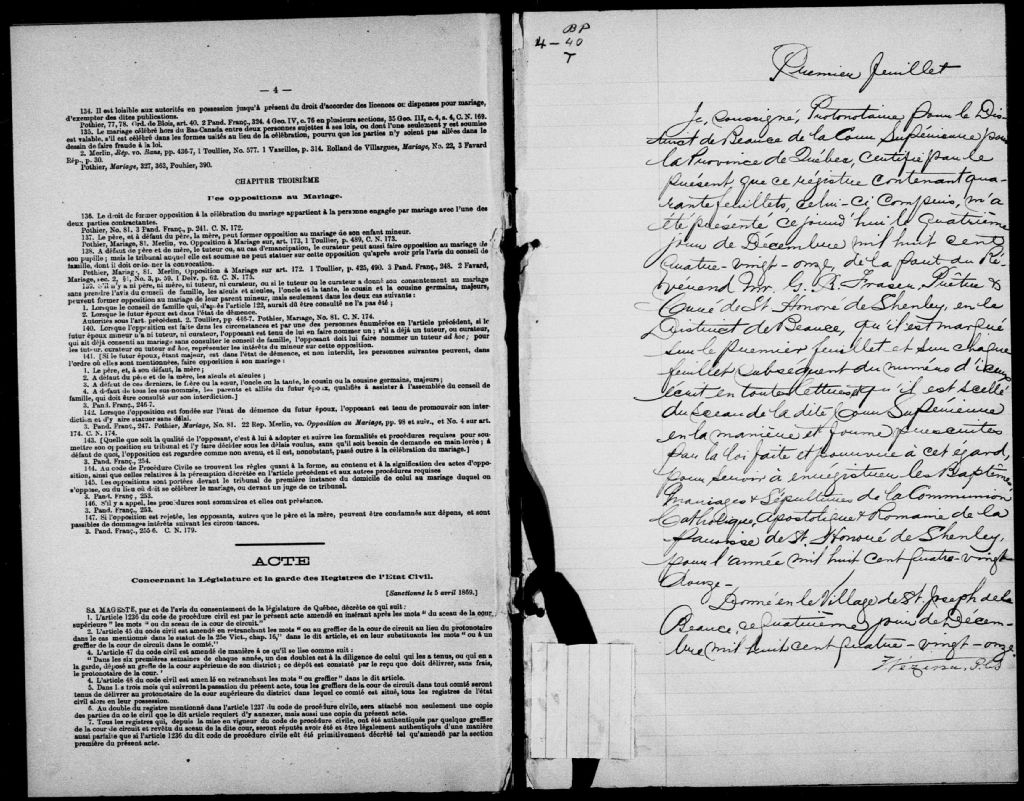 — 4 —
134. Il est loisible aux autorités en possession jusqu'à présent du droit d'accorder des licences ou dispenses pour mariage,
d'exempter des dites publications.
Pothier, 77, 78. Ord. de Blois, art. 40. 2 Pand. Franç., 324. 4 Geo. IV, c. 76 en plusieurs sections, 35 Geo. III, c. 4, s. 4, C. N. 169.
135. Le mariage célébré hors du Bas-Canada entre deux personnes sujettes à ses lois, ou dont l'une seulement y est soumise
est valable, s'il est célébré dans les formes usités au lieu de la célébration, pourvu que les parties n'y soient pas allées dans le
dessin de faire fraude à la loi.
2. Merlin, Rép. vo. Bans, pp. 436-7, 1 Toullier, No. 577. 1 Vazeilles, p. 314. Rolland de Villargues, Mariage, No. 23, 3 Favard
Rép., p. 30.
Pothier, Mariage, 327, 363, Pouhier, 390.
CHAPITRE TROISIÈME
Des oppositions au Mariage.
136. Le droit de former opposition à la célébration du mariage appartient à la personne engagée par mariage avec l'une des
deux parties contractantes.
Pothier, No. 81. 3 Pand. Franç., p. 241. C. N. 172.
137. Le père, et à défaut du père, la mère, peut former opposition au mariage de son enfant mineur.
Pothier, Mariage, 81. Merlin, vo. Opposition à Mariage sur, art. 173, 1 Toullier, p. 489, C. N. 173.
138. A défaut de père et de mère, le tuteur ou, au cas d'émancipation, le curateur peut aussi faire opposition au mariage de
son pupille; mais le tribunal auquel elle est soumise ne peut statuer sur cette opposition qu'après avoir pris l'avis du conseil de
famille, dont il doit ordonner la convocation.
Pothier, Mariag., 81. Merlin, Opposition à Mariage sur art. 172. 1 Toullier, p. 425, 490. 3 Pand. Franç., 248. 2 Favard,
Mariage, sec. 2, §1, No. 3, p. 59. 1 Delv. p. 62. C. N. 175.
139. S'il n'y a ni père, ni mère, ni tuteur, ni curateur, ou si le tuteur ou le curateur a donné son consentement au mariage
sans prendre l'avis du conseil de famille, les aïeuls et aïeules, l'oncle et la tante, le cousin et la cousine germains, majeurs,
peuvent former opposition au mariage de leur parent mineur, mais seulement dans les deux cas suivants:
1. Lorsque le conseil de famille qui, d'après l'article 122, aurait dû être consulté ne l'a pas été;
2. Lorsque le futur époux est dans l'état de démence.
Autorités sous l'art. précédent. 2. Toullier, pp 446-7. Pothier, Mariage, No. 81. C. N. 174.
140. Lorsque l'opposition est faite dans les circonstances et par une des personnes énumérées en l'article précédent, si le
futur époux mineur n'a ni tuteur, ni curateur, l'opposant est tenu de lui en faire nommer un; s'il a déjà un tuteur, ou curateur,
qui ait déjà consenti au mariage sans consulter le conseil de famille, l'opposant doit lui faire nommer un tuteur ad hoc; pour
les tuteur, curateur ou tuteur ad hoc, représenter les intérêts du mineur sur cette opposition.
141. [Si le futur époux, étant majeur, est dans l'état de démence, et non interdit, les personnes suivantes peuvent, dans
l'ordre où elles sont mentionnées, faire opposition à son mariage:
1. Le père, et, à son défaut, la mère;
2. A défaut du père et de la mère, les aïeuls et aïeules;
3. A défaut de ces derniers, le frère ou la sœur, l'oncle ou la tante, le cousin ou la cousine germains, majeurs;
4. A défaut de tous les sus-nommés, les parents et alliés du futur époux, qualifiés à assister à l'assemblée du conseil de
famille, qui doit être consulté sur son interdiction.]
3. Pand. Franç., 246-7.
142. Lorsque l'opposition est fondée sur l'état de démence du futur époux, l'opposant est tenu de promouvoir son inter-
diction et d'y faire statuer sans délai.
3. Pand. Franç., 247. Pothier, Mariage, No. 81. 22 Rep. Merlin, vo. Opposition au Mariage, pp. 98 et suiv., et No. 4 sur art.
174. C. N. 174.
143. [Quelle que soit la qualité de l'opposant, c'est à lui à adopter et suivre les formalités et procédures requises pour sou-
mettre son opposition au tribunal et l'y faire décider sous les délais voulus, sans qu'il soit besoin de demande en main levée; à
défaut de quoi, l'opposition est regardée comme non avenu, et il est, nonobstant, passé outre à la célébration du mariage.]
3. Pand. Franç., 254.
144. Au Code de Procédure Civile se trouvent les règles quant à la forme, au contenu et à la signification des actes d'oppo-
sition, ainsi que celles relatives à la péremption décrétée en l'article précédent et aux autres procédures requises
145. Les oppositions sont portées devant le tribunal de première instance du domicile de celui au mariage duquel on
s'oppose, ou du lieu où doit se célébrer le mariage, ou devant un juge de ce tribunal.
3. Pand. Franç., 253.
146. S'il y a appel, les procédures sont sommaires et elles ont préséance.
3. Pand. Franç., 253.
147. Si l'opposition est rejetée, les opposants, autres que le père et la mère, peuvent être condamnés aux dépens, et sont
passibles de dommages intérêts suivant les circonstances.
3. Pand. Franç., 255-6. C. N. 179.
ACTE
Concernant la Législature et la garde des Registres de l'Etat Civil.
[Sanctionné le 5 avril 1869.]
SA MAGESTÉ, par et de l'avis du consentement de la législature de Québec, décrète ce qui suit:
1. L'article 1236 du code de procédure civil est par le présent acte amendé en insérant après les mots "du sceau de la cour
supérieure" les mots "ou du sceau de la cour de circuit."
2. L'article 45 du code civil est amendé en retranchant les mots "ou au greffier de la cour de circuit au lieu du protonotaire
dans le cas mentionné dans le statut de la 25e Vict., chap. 16," dans le dit article, et en leur substituant les mots "ou à un
greffier de la cour de circuit dans le comté."
4. L'article 47 du code civil est amendé de manière à ce qu'il se lise comme suit:
"Dans les six premières semaines de chaque année, un des doubles est à la diligence de celui qui les a tenus, ou qui en a
la garde, déposé au greffe de la cour supérieure de son district; ce dépôt est constaté par le reçu que doit délivrer, sans frais,
le protonotaire de la cour.'
4. L'article 48 du code civil est amendé en retranchant les mots "ou greffier" dans le dit article.
5. Dans les trois mois qui suivront la passation du présent acte, tous les greffiers de cour de circuit dans tout comté seront
tenus de délivrer au protonotaire de la cour supérieure du district dans lequel ce comté est situé, tous les registres de l'état
civil alors en leur possession.
6. Au double du registre mentionné dans l'article 1237 du code de procédure civile, sera attaché non seulement une copie
des parties du code civil que le dit article requiert d'y annexer, mais aussi une copie du présent acte.
7. Tous les registres qui, depuis la mise en vigueur du code de procédure civile, ont été authentiqués par quelque greffier
de la cour de circuit et revêtu du sceau de la dite cour, seront réputés avoir été et être légalement authentiqués d'une manière
aussi parfaite que si l'article 1236 du dit code de procédure civile eût été primitivement décrété tel qu'amendé par la section
première du présent acte.
BP
4 — 40
T
Premier feuillet
Je, soussigné, Protonotaire pour le Dis-
trict de Beauce de la Cour Supérieure pour
la Province de Québec, certifie par le
présent que ce régistre contenant qua-
rante feuillets, celui-ci compris, m'a
été présenté ce jourd'hui le quatrième
jour de Décembre mil huit cent
quatre-vingt-onze, de la part du Ré-
vérend Mr. G. R. Fraser, Prêtre &
Curé de St. Honoré de Shenley, en le
District de Beauce, qu'il est marqué
sur le premier feuillet et sur chaque
feuillet subséquent du numéro d'iceux
écrit en toutes lettres & qu'il est scellé
du sceau de la dite Cour Supérieure
en la manière et forme prescrites
par la loi faite et pourvue à cet égard,
pour servir à enregistrer les Baptêmes
Mariages & Sépultures de la Communion
Catholique, Apostolique & Romaine de la
Paroisse de St. Honoré de Shenley,
pour l'année mil huit cent quatre-vingt
douze -
Donné en le Village de St. Joseph de la
Beauce, ce quatrième jour de Décem-
bre mil huit cent quatre-vingt-onze.
Vézina, P.C.S.